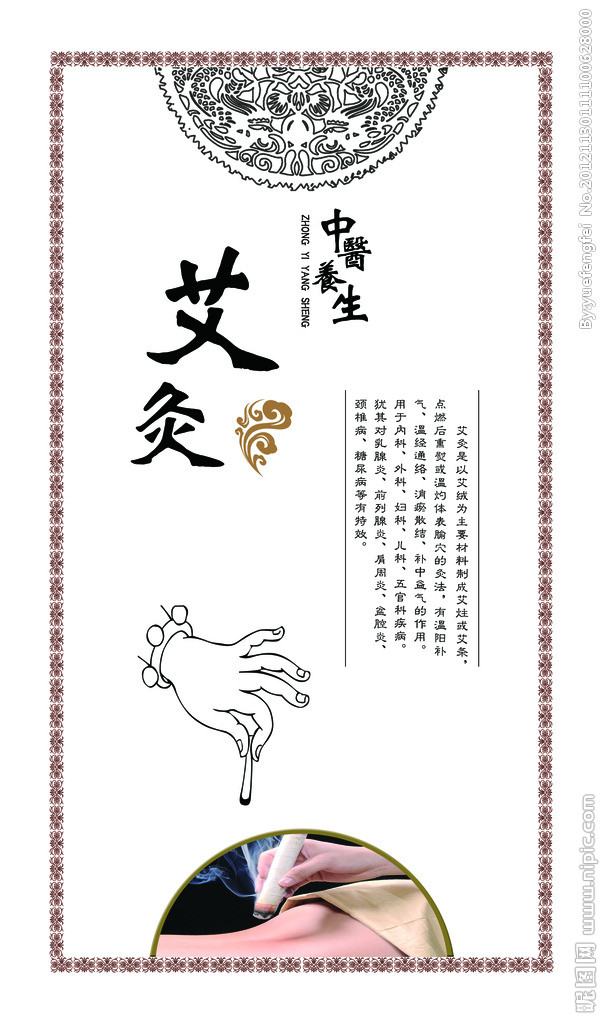 中醫養生
ZHONG YI YANG SHENG
艾灸
艾灸是以艾绒为主要材料制成艾炷或艾条，
点燃后熏熨或温灼体表腧穴的灸法，有温阳补
气、温经通络、消瘀散结、补中益气的作用。
用于内科、外科、妇科、儿科、五官科疾病。
犹其对乳腺炎、前列腺炎、肩周炎、盆腔炎、
颈椎病、糖尿病等有特效。
By:yuefengfei No.20121130111100628000
昵图网 www.nipic.com